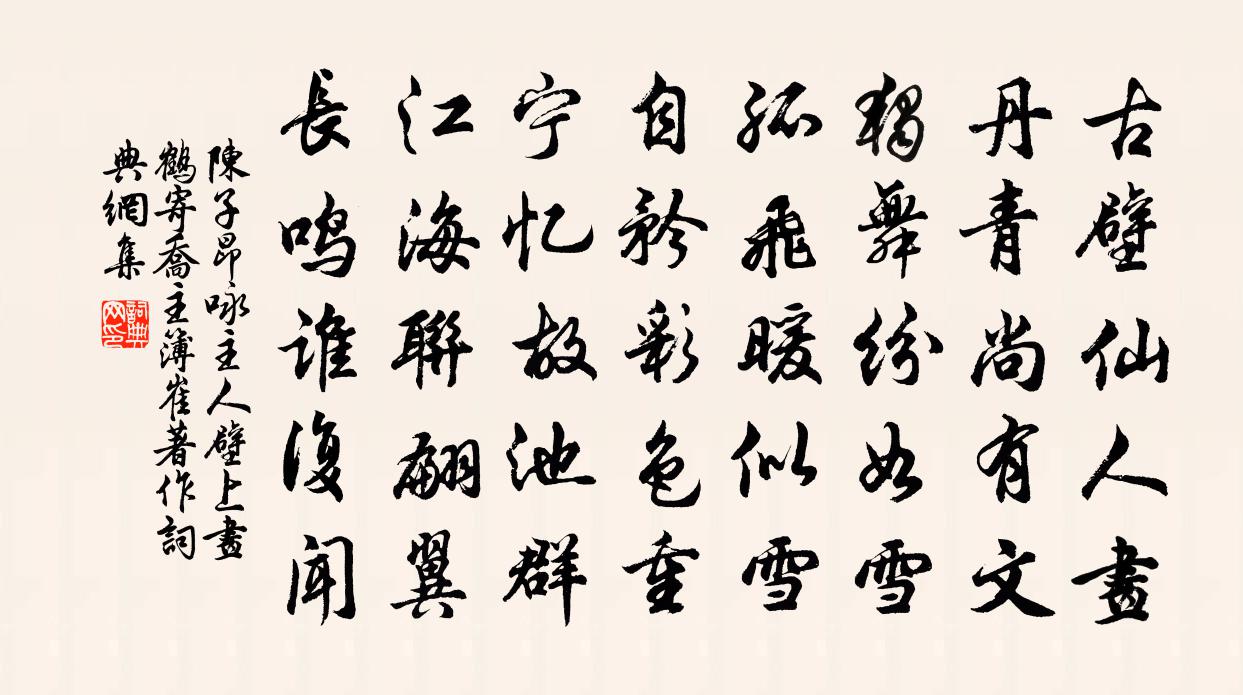 古壁仙人畫
丹青尚有文
獨舞紛如雪
孤飛暖似雪
自矜彩色重
宁忆故池群
江海聯翩翼
長鸣谁復闻
陳子昂咏主人壁上畫
鶴寄喬主簿崔著作詞
典網集
詞典
网印